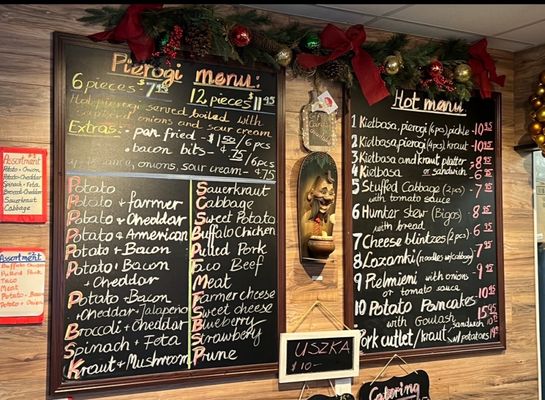 Pierogi menu:
6 pieces $7.95 12 pieces $11.95
Hot pierogi served boiled with
onions and sour cream
Extras: - pan fried - $1.50/6pcs
- bacon bits - $.75/6pcs
onions, sour cream - $.75
Potato
Potato + farmer
Potato + Cheddar
Potato + American
Potato + Bacon
Potato + Bacon
+ Cheddar
Potato + Bacon
+ Cheddar + Jalapeno
Broccoli + Cheddar
Spinach + Feta
Kraut + Mushroom
Sauerkraut
Cabbage
Sweet Potato
Buffalo Chicken
Pulled Pork
Taco Beef
Meat
Farmer cheese
Sweet cheese
Blueberry
Strawberry
Prune
Hot menu:
1 Kielbasa, pierogi (6pcs) pickle - 10.95
2 Kielbasa, pierogi (4pcs) kraut - 10.95
3 Kielbasa and kraut platter - 8.95
4 Kielbasa or sandwich
5 Stuffed Cabbage (2pcs)
with tomato sauce
6 Hunter stew (Bigos)
with bread
7 Cheese blintzes (2pcs)
8 Lazanki (noodles w/cabbage)
9 Pielmieni with onions
or tomato sauce
10 Potato Pancakes 10.95
with Goulash
Pork cutlet/kraut sandwich
w/potatoes
Assortment
Potato + Onion
Potato + Cheddar
Spinach + Feta
Broccoli + Cheddar
Sauerkraut
Cabbage
Assortment
Buffalo Chicken
Pulled Pork
Taco
Meat
Potato + Bacon
USZKA
$10
Catering